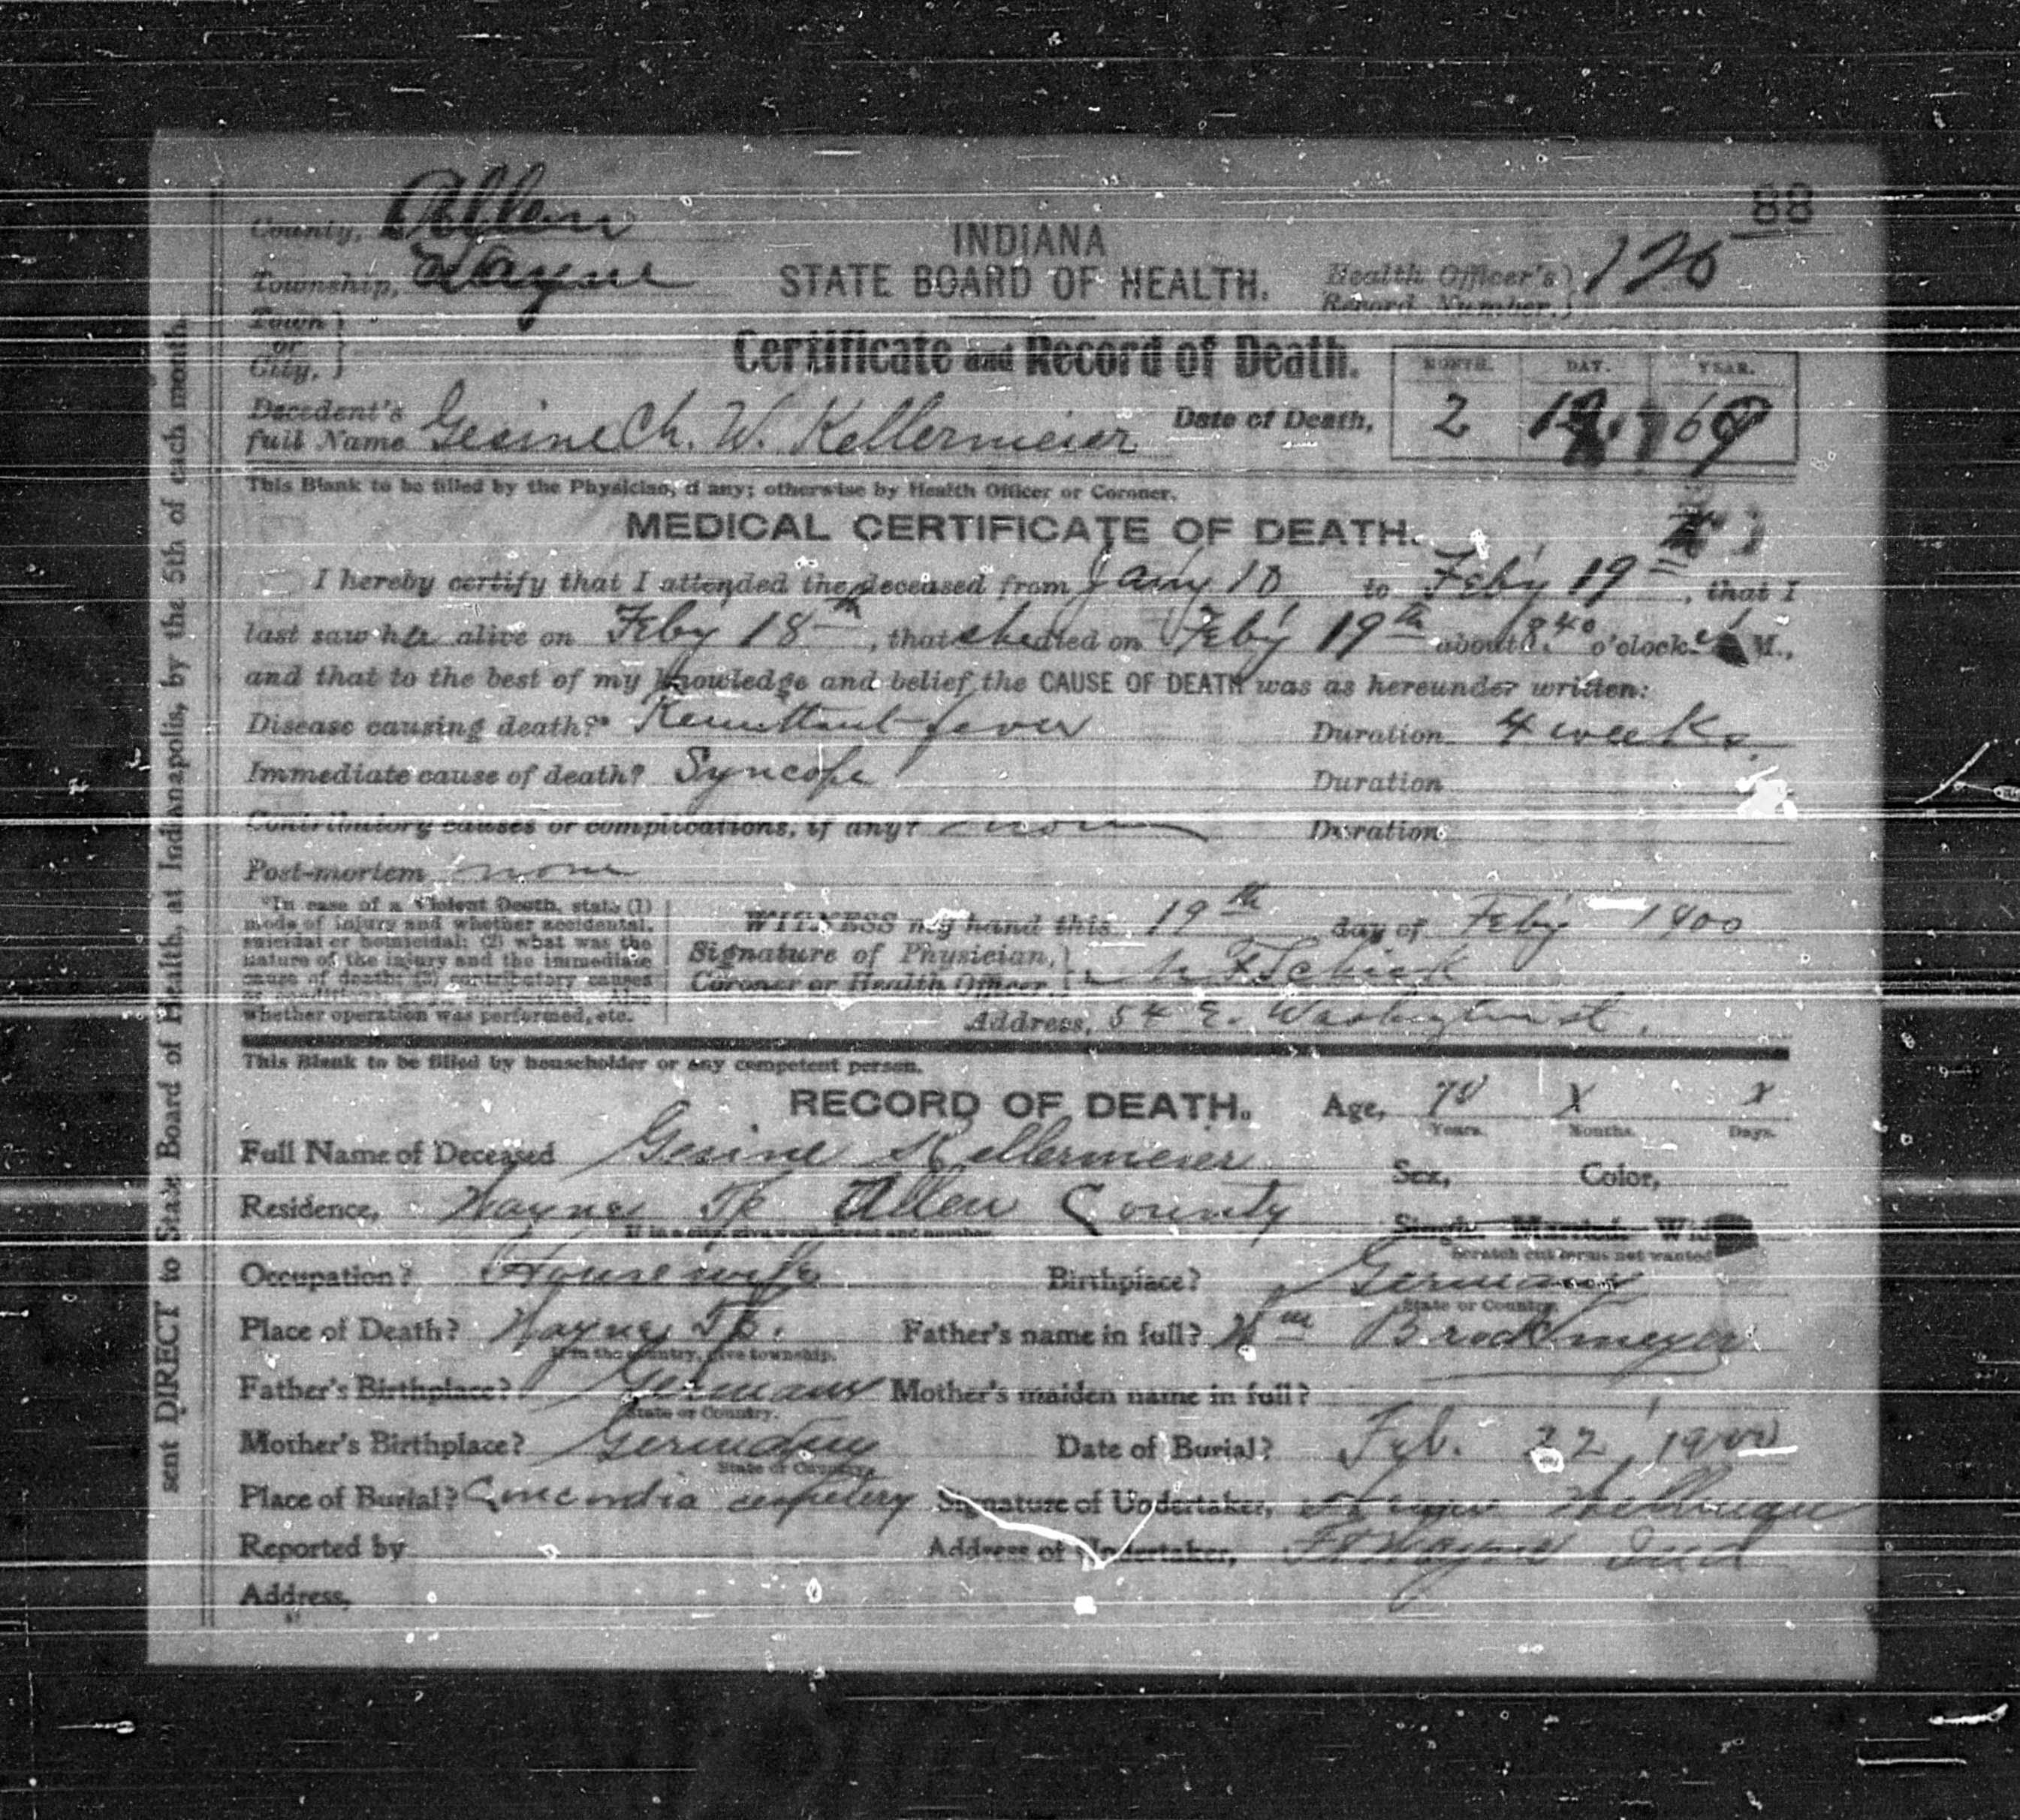 88
County, Allen
Township, Wayne
Town
or
City,
INDIANA
STATE BOARD OF HEALTH.
Health Officer's
Record Number. 126
Certificate and Record of Death.
MONTH. DAY. YEAR.
Decedent's
full Name Gesine Ch. W. Kellermeier Date of Death, 2 19
This Blank to be filled by the Physician, if any; otherwise by Health Officer or Coroner.
MEDICAL CERTIFICATE OF DEATH.
I hereby certify that I attended the deceased from Jany 10 to Feby 19th, that I
last saw her alive on Feby 18th, that she died on Feby 19th about 8.40 o'clock M.,
and that to the best of my knowledge and belief the CAUSE OF DEATH was as hereunder written:
Disease causing death?* Remittant fever Duration 4 weeks.
Immediate cause of death? Syncope Duration
Contributory causes or complications, if any? none Duration
Post-mortem none
*In case of a Violent Death, state (1)
mode of injury and whether accidental,
suicidal or homicidal; (2) what was the
nature of the injury and the immediate
cause of death; (3) contributory causes
or conditions, Also
whether operation was performed, etc.
WITNESS my hand this 19th day of Feby 1900
Signature of Physician,
Coroner or Health Officer. F Schick
Address, 54 E. Washington st.
This Blank to be filled by householder or any competent person.
RECORD OF DEATH.
Age, 70 X X
Years. Months. Days.
Full Name of Deceased Gesine Kellermeier
Sex, Color,
Residence, Wayne Tp Allen County
If in a city, give ward, street and number.
Single. Married. Wid
Scratch out terms not wanted
Occupation? Housewife Birthplace? Germany
State or Country.
Place of Death? Wayne Tp. Father's name in full? Wm Brockmeyer
If in the country, give township.
Father's Birthplace? Germany Mother's maiden name in full?
State or Country.
Mother's Birthplace? Germany Date of Burial? Feb. 22, 1900
State or Country.
Place of Burial? Concordia cemetery Signature of Undertaker,
Reported by Address of Undertaker, Ft Wayne Ind
Address,
sent DIRECT to State Board of Health, at Indianapolis, by the 5th of each month.